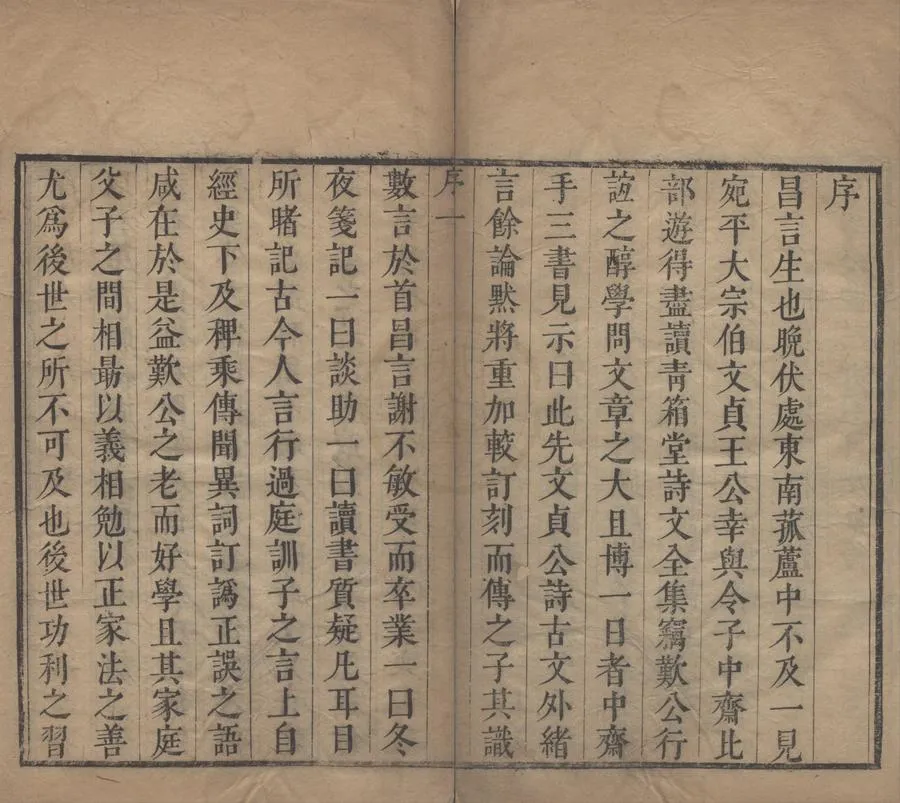 序
昌言生也晚伏處東南菰蘆中不及一見
宛平大宗伯文貞王公幸與令子中齋比
部遊得盡讀靑箱堂詩文全集竊歎公行
誼之醇學問文章之大且博一日者中齋
手三書見示曰此先文貞公詩古文外緒
言餘論默將重加較訂刻而傳之子其識
序一
數言於首昌言謝不敏受而卒業一曰冬
夜箋記一曰談助一曰讀書質疑凡耳目
所睹記古今人言行過庭訓子之言上自
經史下及稗乘傳聞異詞訂譌正誤之語
咸在於是益歎公之老而好學且其家庭
父子之間相勗以義相勉以正家法之善
尤爲後世之所不可及也後世功利之習